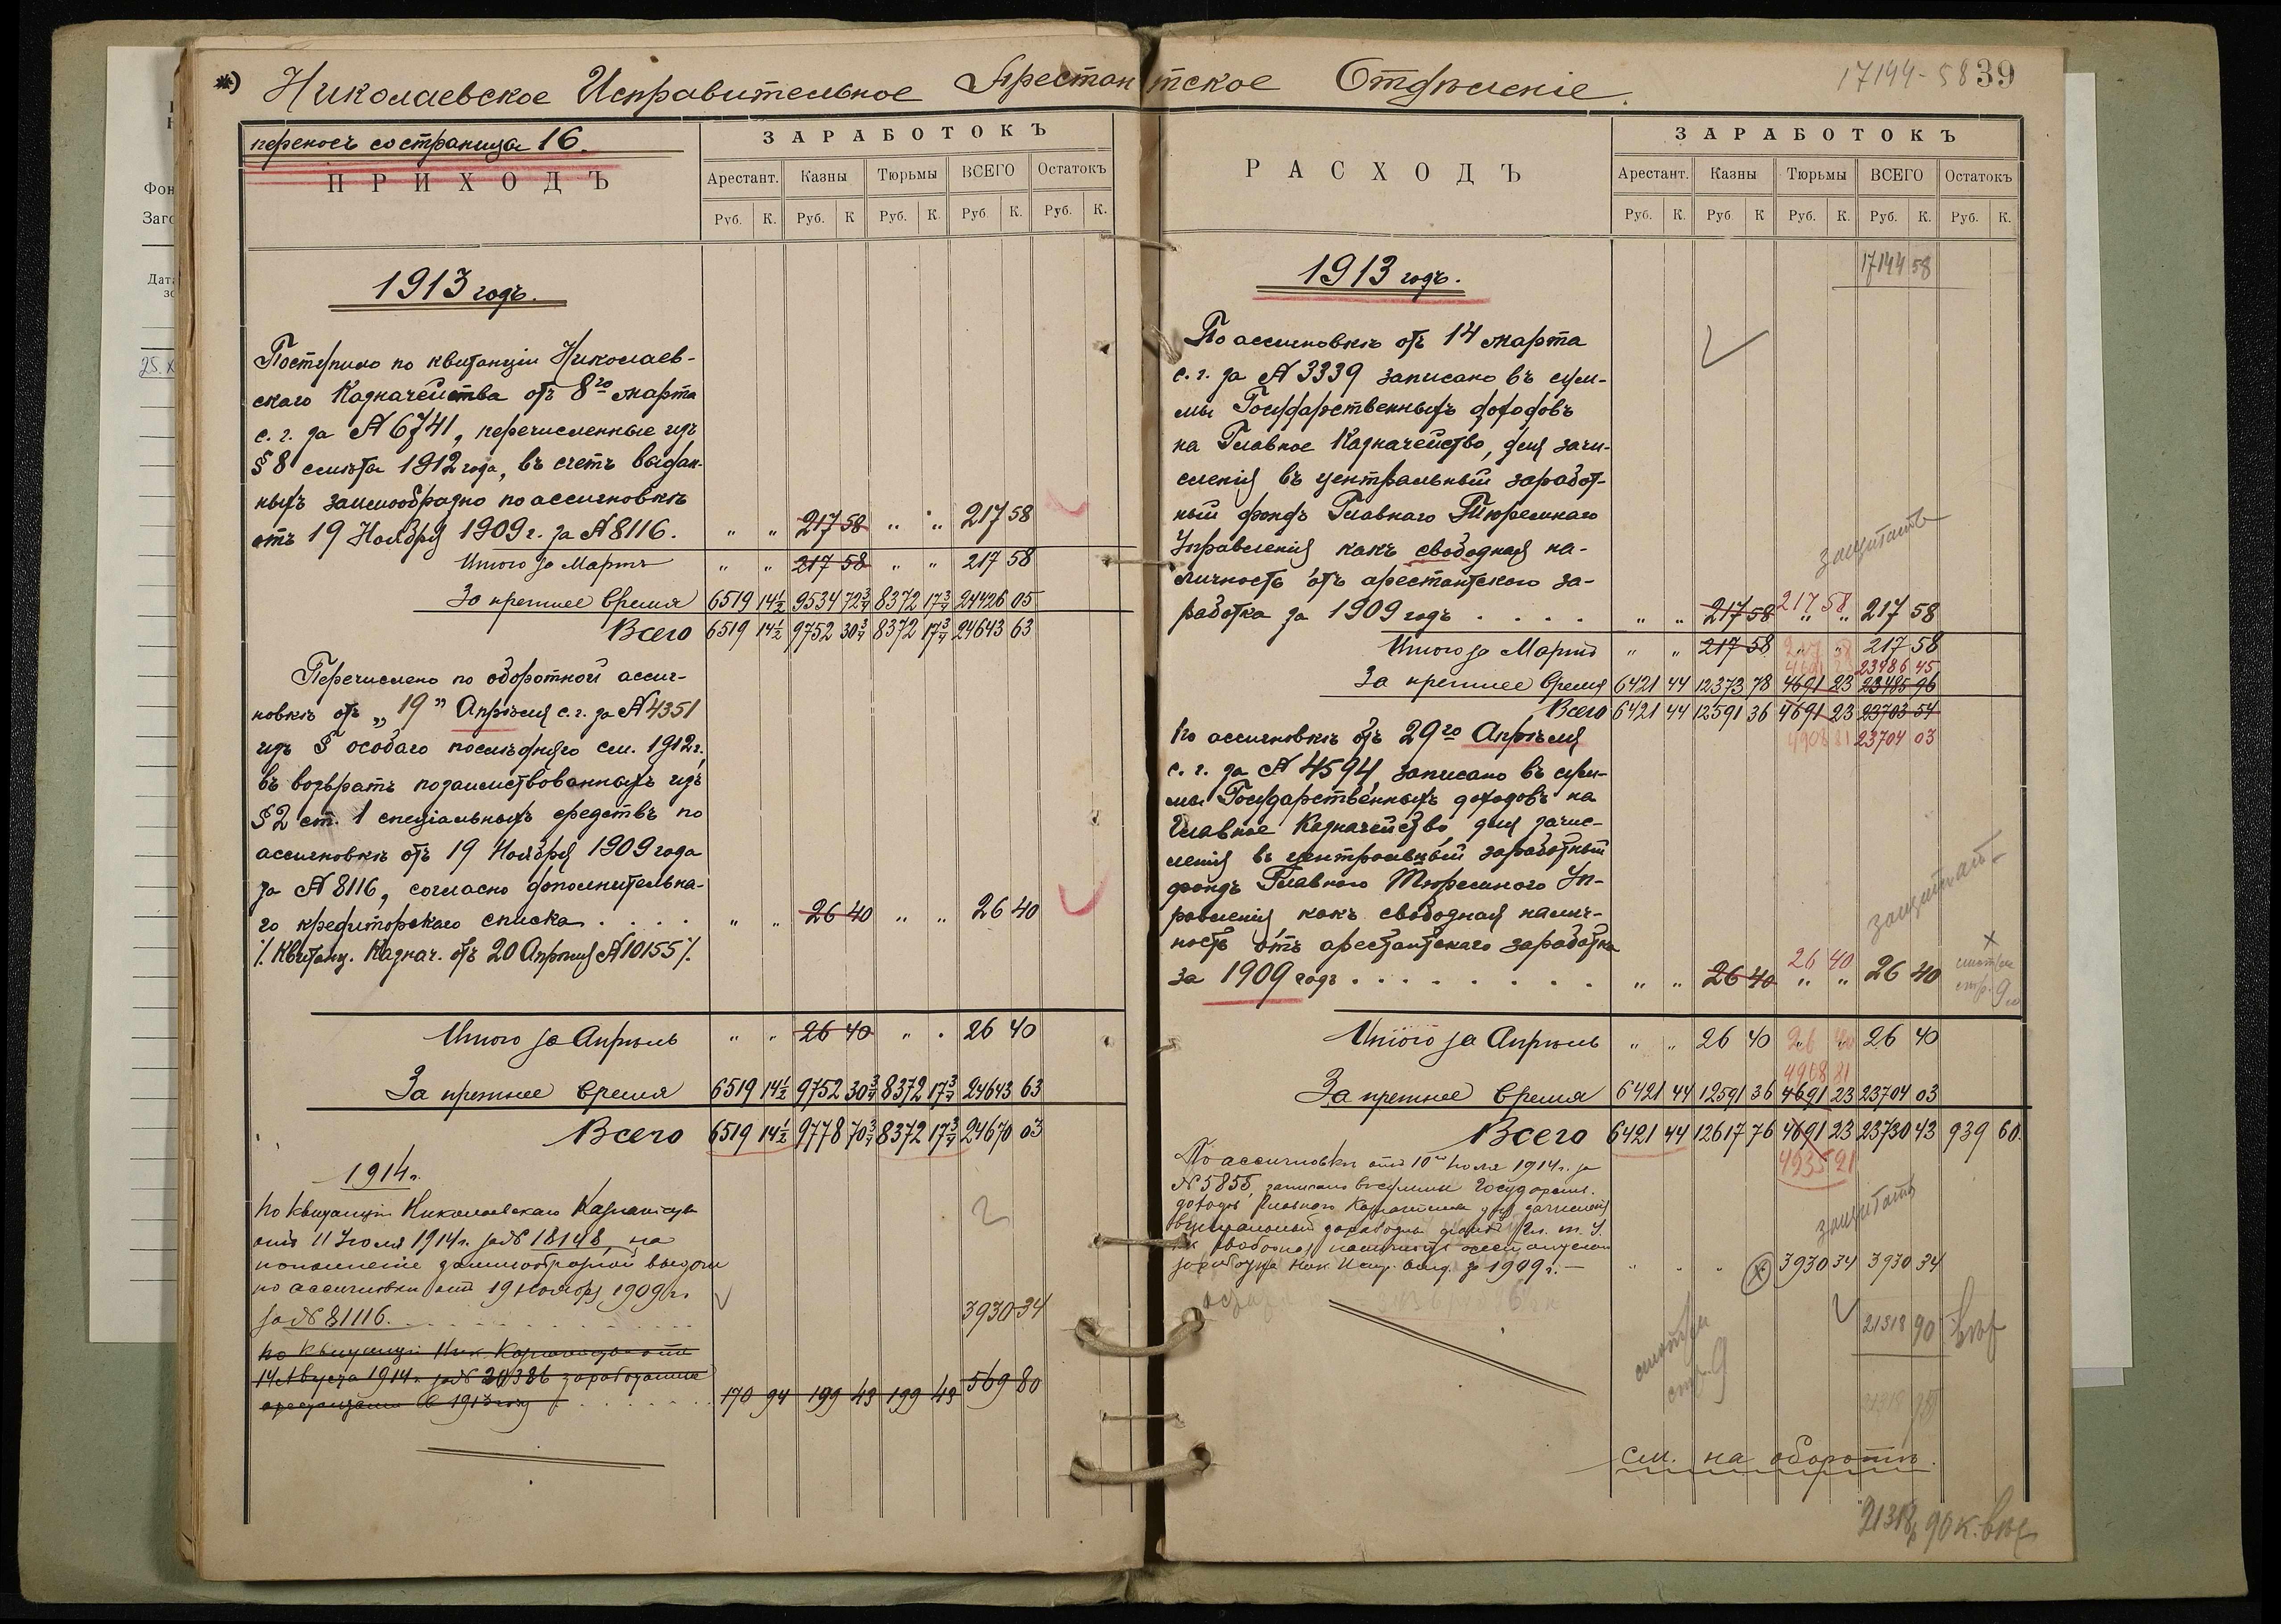 *) Николаевское Исправительное Арестантское Отдѣленіе.
17144-58 39
переносъ со страницы 16.
ПРИХОДЪ
ЗАРАБОТОКЪ
Арестант. Казны Тюрьмы ВСЕГО Остатокъ
Руб. К. Руб. К Руб. К. Руб К. Руб. К.
1913 годъ.
Поступило по квитанціи Николаев-
скаго Казначейства отъ 8го марта
с. г. за № 6741, перечисленные изъ
§ 8 смѣты 1912 года, въ счетъ выдан-
ныхъ заимообразно по ассигновкѣ
отъ 19 Ноября 1909 г. за № 8116. " " 217 58 " " 217 58
Итого за Мартъ " " 217 58 " " 217 58
За прежнее время 6519 14½ 9534 72¾ 8372 17¾ 24426 05
Всего 6519 14½ 9752 30¾ 8372 17¾ 24643 63
Перечислено по оборотной ассиг-
новкѣ отъ „19" Апрѣля с. г. за № 4351
изъ § особаго послѣдняго см. 1912 г.,
въ возвратъ позаимствованныхъ изъ
§ 2 ст. 1 спеціальныхъ средствъ по
ассигновкѣ отъ 19 Ноября 1909 года
за № 8116, согласно дополнительна-
го кредиторскаго списка . . . . " " 26 40 " " 26 40
./. Квитанц. Казнач. отъ 20 Апрѣля № 10155 ./.
Итого за Апрѣль " " 26 40 " " 26 40
За прежнее время 6519 14½ 9752 30¾ 8372 17¾ 24643 63
Всего 6519 14½ 9778 70¾ 8372 17¾ 24670 03
1914 г.
По квитанціи Николаевскаго Казначейства
отъ 11 Іюля 1914 г. за № 18148, на
пополненіе заимообразной выдачи
по ассигновки отъ 19 ноября 1909 г.
за № 81116. 3930 34
По квитанціи Ник. Казначейства отъ
14 Августа 1914 г. за № 20386 заработанные
арестантами в 1913 году 170 94 199 43 199 43 569 80
РАСХОДЪ
ЗАРАБОТОКЪ
Арестант. Казны Тюрьмы ВСЕГО Остатокъ
Руб. К. Руб К Руб. К. Руб. К. Руб. К.
17144 58
1913 годъ.
По ассигновкѣ отъ 14 марта
с. г. за № 3339 записано въ сум-
мы Государственныхъ доходовъ
на Главное Казначейство, для зачи-
сленія въ центральный заработ-
ный фондъ Главнаго Тюремнаго
Управленія какъ свободная на-
личность отъ арестантскаго за-
защитать
работка за 1909 годъ . . . . " " 217 58 217 58 " " 217 58
Итого за Мартъ " " 217 58 217 58 217 58
4691 23 23486 45
За прежнее время 6421 44 12373 78 4691 23 23485 96
Всего 6421 44 12591 36 4691 23 23703 54
4908 81 23704 03
По ассигновкѣ отъ 29го Апрѣля
с. г. за № 4594 записано въ сум-
мы Государственныхъ доходовъ на
Главное Казначейство, для зачис-
ленія въ центральный заработный
фондъ Главнаго Тюремнаго Уп-
равленія какъ свободная налич-
ность отъ арестантскаго заработка
защитать
за 1909 годъ . . . . . . . . " " 26 40 26 40 " " 26 40
× смотри стр. 9
Итого за Апрѣль " " 26 40 26 40 26 40
4908 81
За прежнее время 6421 44 12591 36 4691 23 23704 03
Всего 6421 44 12617 76 4691 23 23730 43 939 60.
4935 21
По ассигновки отъ 10го Іюля 1914 г. за
№ 5855, записано въ суммы Государств.
доходъ Главного Казначейства для зачисленія
защитать
заработка Ник. Испр. Отд. за 1909 г. — " " " × 3930 34 3930 34
21318 90
смотри
стр. 9
см. на оборотѣ.
21318 р 90 к.